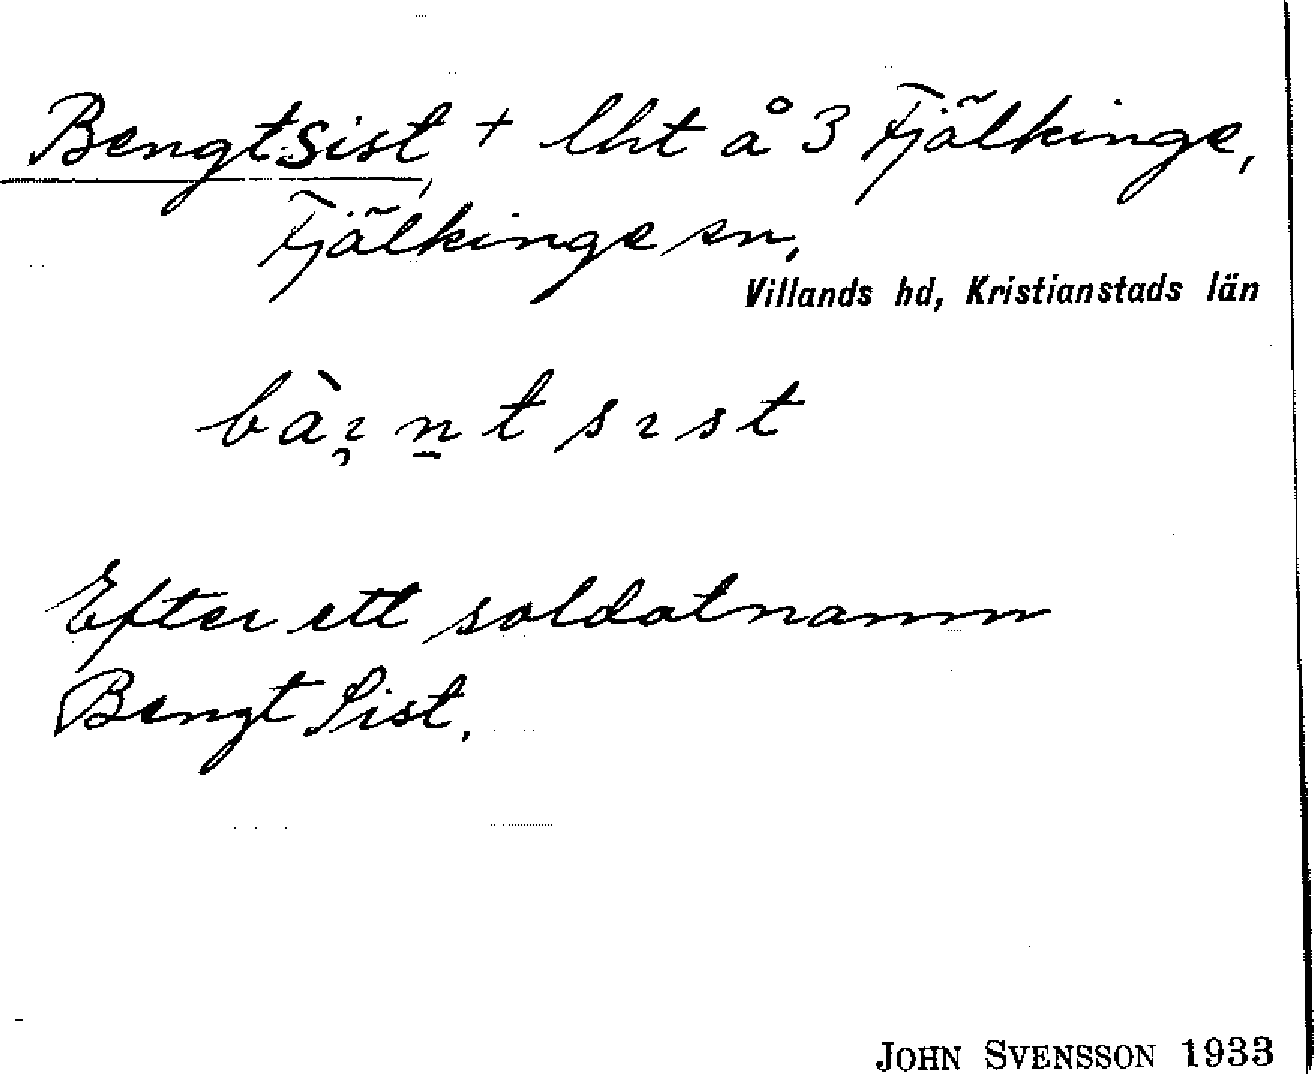 Bengtsist + lht å 3 Fjälkinge,
Fjälkinge sn,
Villands hd, Kristianstads län
Efter ett soldatnamn
Bengt Sist.
JOHN SVENSSON 1933